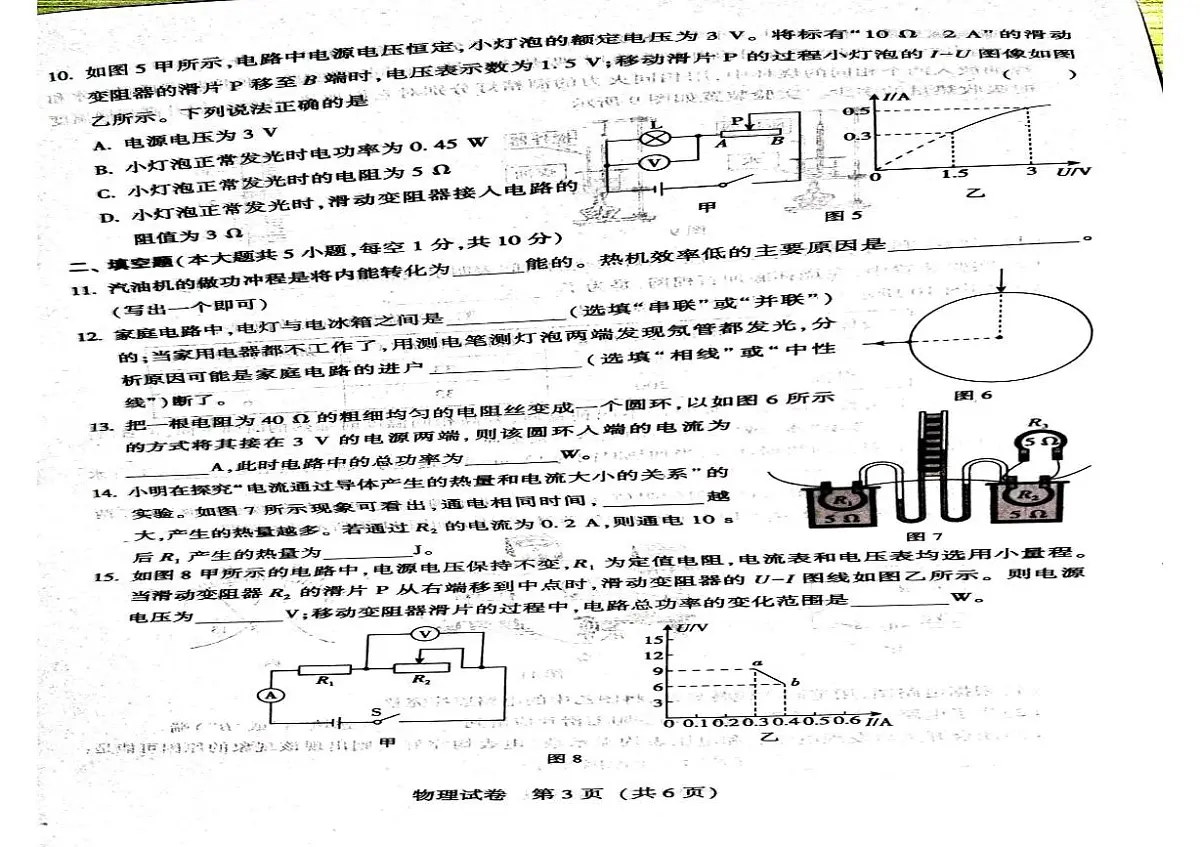 10. 如图 5 甲所示,电路中电源电压恒定,小灯泡的额定电压为 3 V。将标有“10 Ω 2 A”的滑动
变阻器的滑片 P 移至 B 端时,电压表示数为 1.5 V;移动滑片 P 的过程小灯泡的 I-U 图像如图
乙所示。下列说法正确的是 ( )
A. 电源电压为 3 V
B. 小灯泡正常发光时电功率为 0.45 W
C. 小灯泡正常发光时的电阻为 5 Ω
D. 小灯泡正常发光时,滑动变阻器接人电路的
阻值为 3 Ω
L
V
P
A
B
甲
I/A
0.5
0.3
0
1.5
3
U/V
乙
图 5
二、填空题(本大题共 5 小题,每空 1 分,共 10 分)
11. 汽油机的做功冲程是将内能转化为______能的。热机效率低的主要原因是______。
(写出一个即可)
12. 家庭电路中,电灯与电冰箱之间是______(选填“串联”或“并联”)
的;当家用电器都不工作了,用测电笔测灯泡两端发现氖管都发光,分
析原因可能是家庭电路的进户______(选填“相线”或“中性
线”)断了。
图 6
13. 把一根电阻为 40 Ω 的粗细均匀的电阻丝变成一个圆环,以如图 6 所示
的方式将其接在 3 V 的电源两端,则该圆环人端的电流为
______A,此时电路中的总功率为______W。
14. 小明在探究“电流通过导体产生的热量和电流大小的关系”的
实验。如图 7 所示现象可看出,通电相同时间,______越
大,产生的热量越多。若通过 R₂ 的电流为 0.2 A,则通电 10 s
后 R₁ 产生的热量为______J。
R₃
5 Ω
R₁
5 Ω
R₂
5 Ω
图 7
15. 如图 8 甲所示的电路中,电源电压保持不变,R₁ 为定值电阻,电流表和电压表均选用小量程。
当滑动变阻器 R₂ 的滑片 P 从右端移到中点时,滑动变阻器的 U-I 图线如图乙所示。则电源
电压为______V;移动变阻器滑片的过程中,电路总功率的变化范围是______W。
V
R₁
R₂
A
S
甲
U/V
15
12
9
6
3
a
b
0 0.1 0.2 0.3 0.4 0.5 0.6 I/A
乙
图 8
物理试卷 第 3 页 (共 6 页)